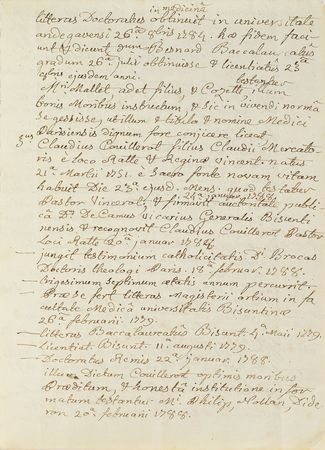 in medicinâ
litteras Doctoratus obtinuit in universitate
andegavensi 26ª 8bris 1784. hæ fidem faci-
unt Dnum Besnard Baccalaureatus
gradum 26ª julii obtinuisse & licentiatus 23ª
ejusdem anni.
testantur
Mri Mallet adet filius & Cozette illum
bonis Moribus instructum, & sic in vivendi normâ
se gessisse, ut illum & titulo & nomine Medici
Parisiensis dignum fore conjicere liceat
3us Claudius Couillerot filius Claudii Mercato-
ris e loco Ratte & Reginæ vincent. natus
21ª Martii 1751. e Sacro fonte novam vitam
habuit Die 23ª ejusd. Mens. quod testatur
24ª januar 1788
Pastor Vincerat, & firmavit auctoritate publi-
câ Ds De Camus Vicarius Generalis Bisunti-
nensis & recognovit Claudium Couillerot Pastor
Loci Ratte 20ª januar 1788
— jungit testimonium catholicitatis Ds Brocas
Doctoris theologi Paris. 18ª februar. 1788.
— trigesimum septimum ætatis annum percurrit.
— Præ se fert litteras Magisterii artium in fa-
cultate Medicâ universitatis Bisuntinæ
26ª februarii 1779.
— Litteras Baccalaureatus Bisunt. 4ª Maii 1779.
— Licentiat. Bisunt. 11ª augusti 1779.
— Doctoratus Remis 22ª januar. 1788.
illum Dictum Couillerot optimis moribus
Præditum, & honestâ institutione in for-
matum testantur Mri Philip, Hollan, Dide
ron 20ª februarii 1788.